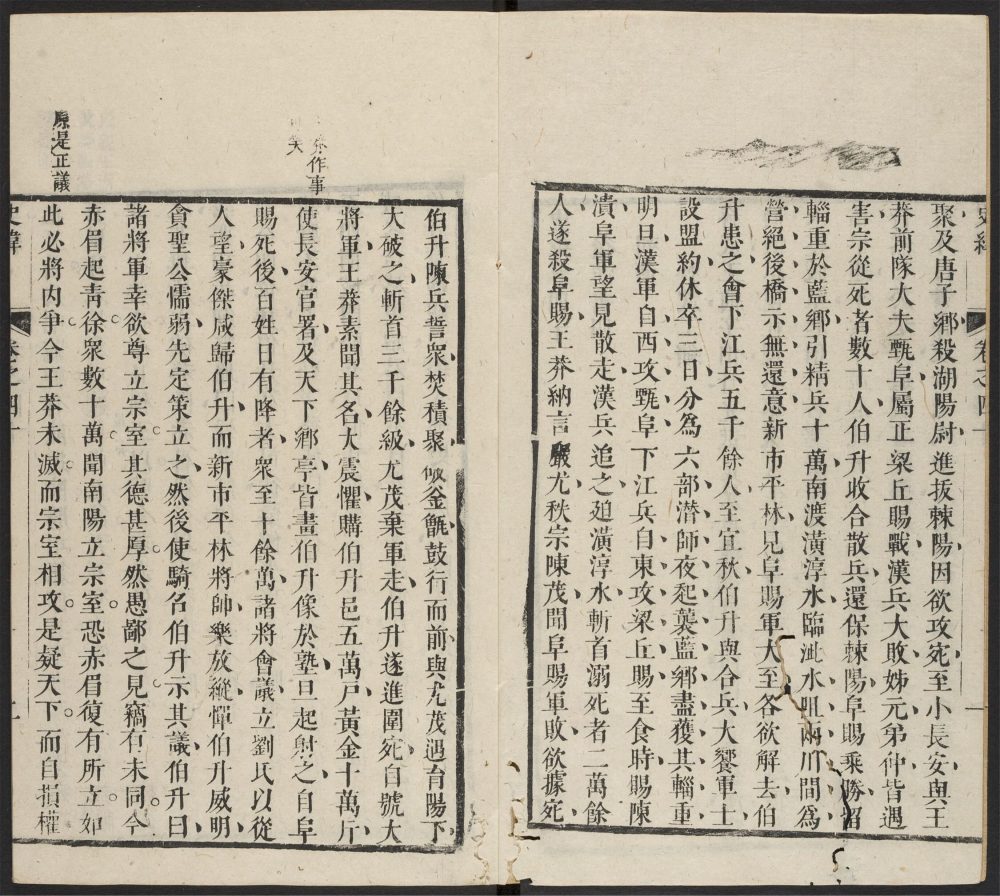 史緯
卷之四十
一
聚及唐子鄉殺湖陽尉進拔棘陽因欲攻宛至小長安與王
莽前隊大夫甄阜屬正梁丘賜戰漢兵大敗姊元弟仲皆遇
害宗從死者數十人伯升收合散兵還保棘陽阜賜乘勝留
輜重於藍鄉引精兵十萬南渡潢淳水臨沘水阻兩川間為
營絕後橋示無還意新市平林見阜賜軍大至各欲解去伯
升患之會下江兵五千餘人至宜秋伯升與合兵大饗軍士
設盟約休卒三日分為六部潛師夜起襲藍鄉盡獲其輜重
明旦漢軍自西攻甄阜下江兵自東攻梁丘賜至食時賜陳
潰阜軍望見散走漢兵追之迫潢淳水斬首溺死者二萬餘
人遂殺阜賜王莽納言嚴尤秩宗陳茂聞阜賜軍敗欲據宛
伯升陳兵誓眾焚積聚破釜甑鼓行而前與尤茂遇育陽下
大破之斬首三千餘級尤茂棄軍走伯升遂進圍宛自號大
將軍王莽素聞其名大震懼購伯升邑五萬戶黃金十萬斤
使長安官署及天下鄉亭皆畫伯升像於塾旦起射之自阜
賜死後百姓日有降者眾至十餘萬諸將會議立劉氏以從
人望豪傑咸歸伯升而新市平林將帥樂放縱憚伯升威明
貪聖公懦弱先定策立之然後使騎召伯升示其議伯升曰
諸將軍幸欲尊立宗室其德甚厚然愚鄙之見竊有未同今
赤眉起青徐眾數十萬聞南陽立宗室恐赤眉復有所立如
此必將內爭今王莽未滅而宗室相攻是疑天下而自損權
作事
笑
原是正議
史緯
卷之四十
二